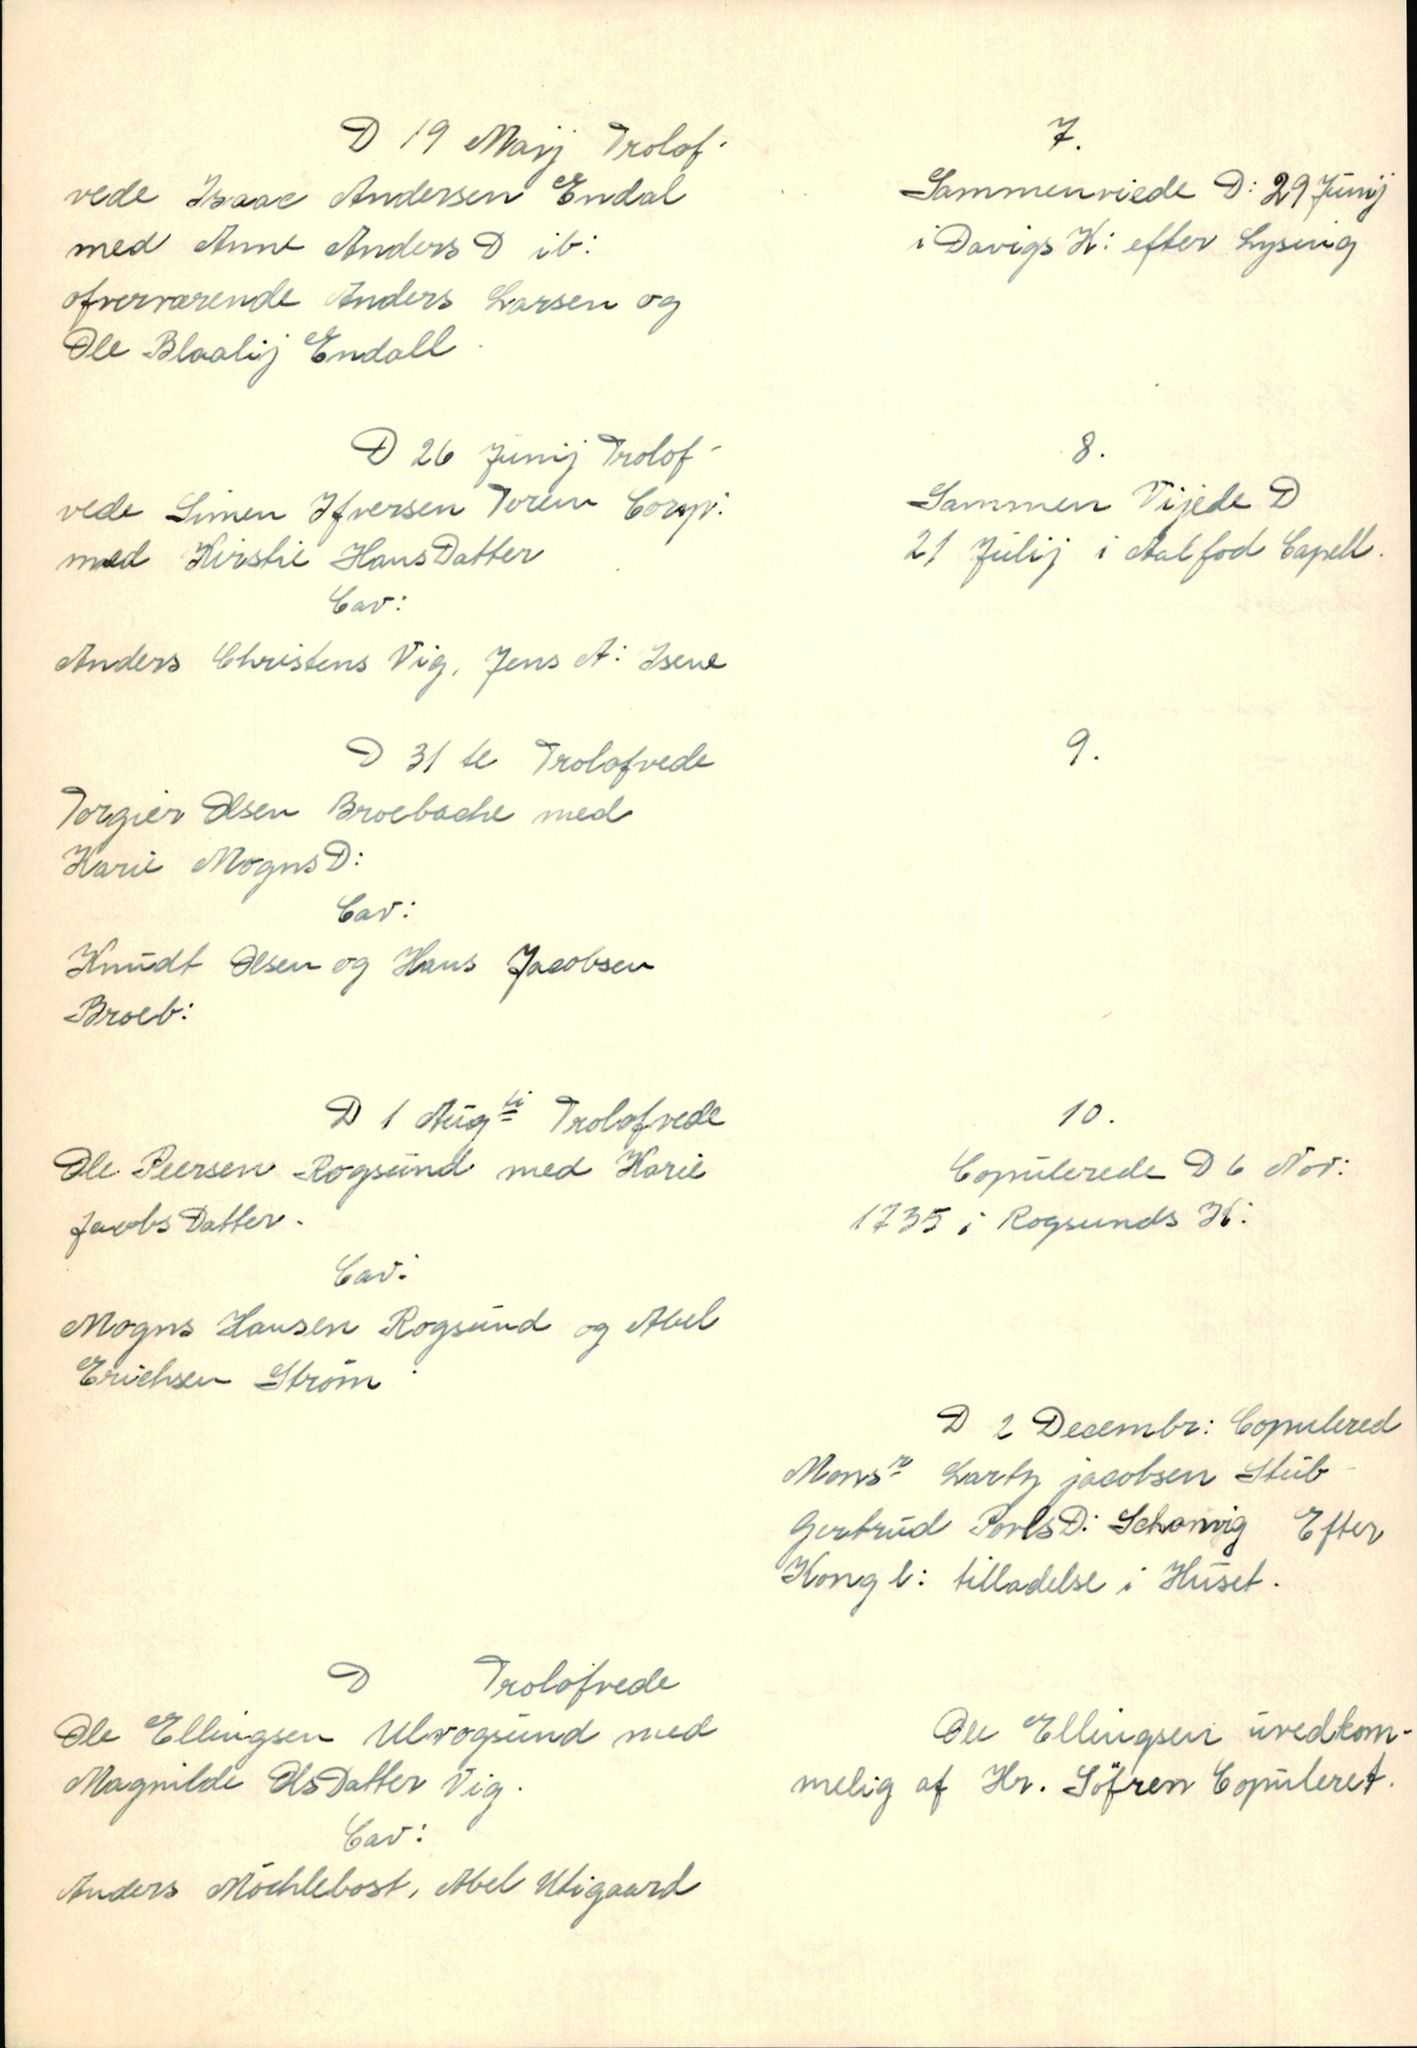 D 19 Maij Trolof-
vede Isaac Andersen Endal
med Anne Anders D ib:
ofverværende Anders Larsen og
Ole Blaalij Endall.
7.
Sammenviede D: 29 Junij
i Davigs K: efter Lysnig
D 26 Junij Trolof-
vede Simen Ifversen Torem Corp:
med Kirstie HansDatter
Cav:
Anders Christens Vig, Jens A: Isene
8.
Sammen Vijede D
21 Julij i Aalfod Capell.
D 31 te Trolofvede
Torgier Olsen Broebache med
Karie MognsD:
Cav:
Knudt Olsen og Hans Jacobsen
Broeb:
9.
D 1 Aug ti Trolofvede
Ole Peersen Rogsund med Karie
JacobsDatter.
Cav:
Mogns Hansen Rogsund og Abel
Erichsen Strøm
10.
Copulerede D 6 Nov:
1735 i Rogsunds K:
D 2 Decembr: Copulered
Mons r Lartz jacobsen Stub
Gertrud PovlsD: Schonvig Efter
Kongl: tilladelse i Huset.
D Trolofvede
Ole Ellingsen Ulvogsund med
Magnilde OlsDatter Vig.
Cav:
Anders Möchlebost, Abel Utigaard
Ole Ellingsen uvedkom-
melig af Hr. Söfren Copuleret.